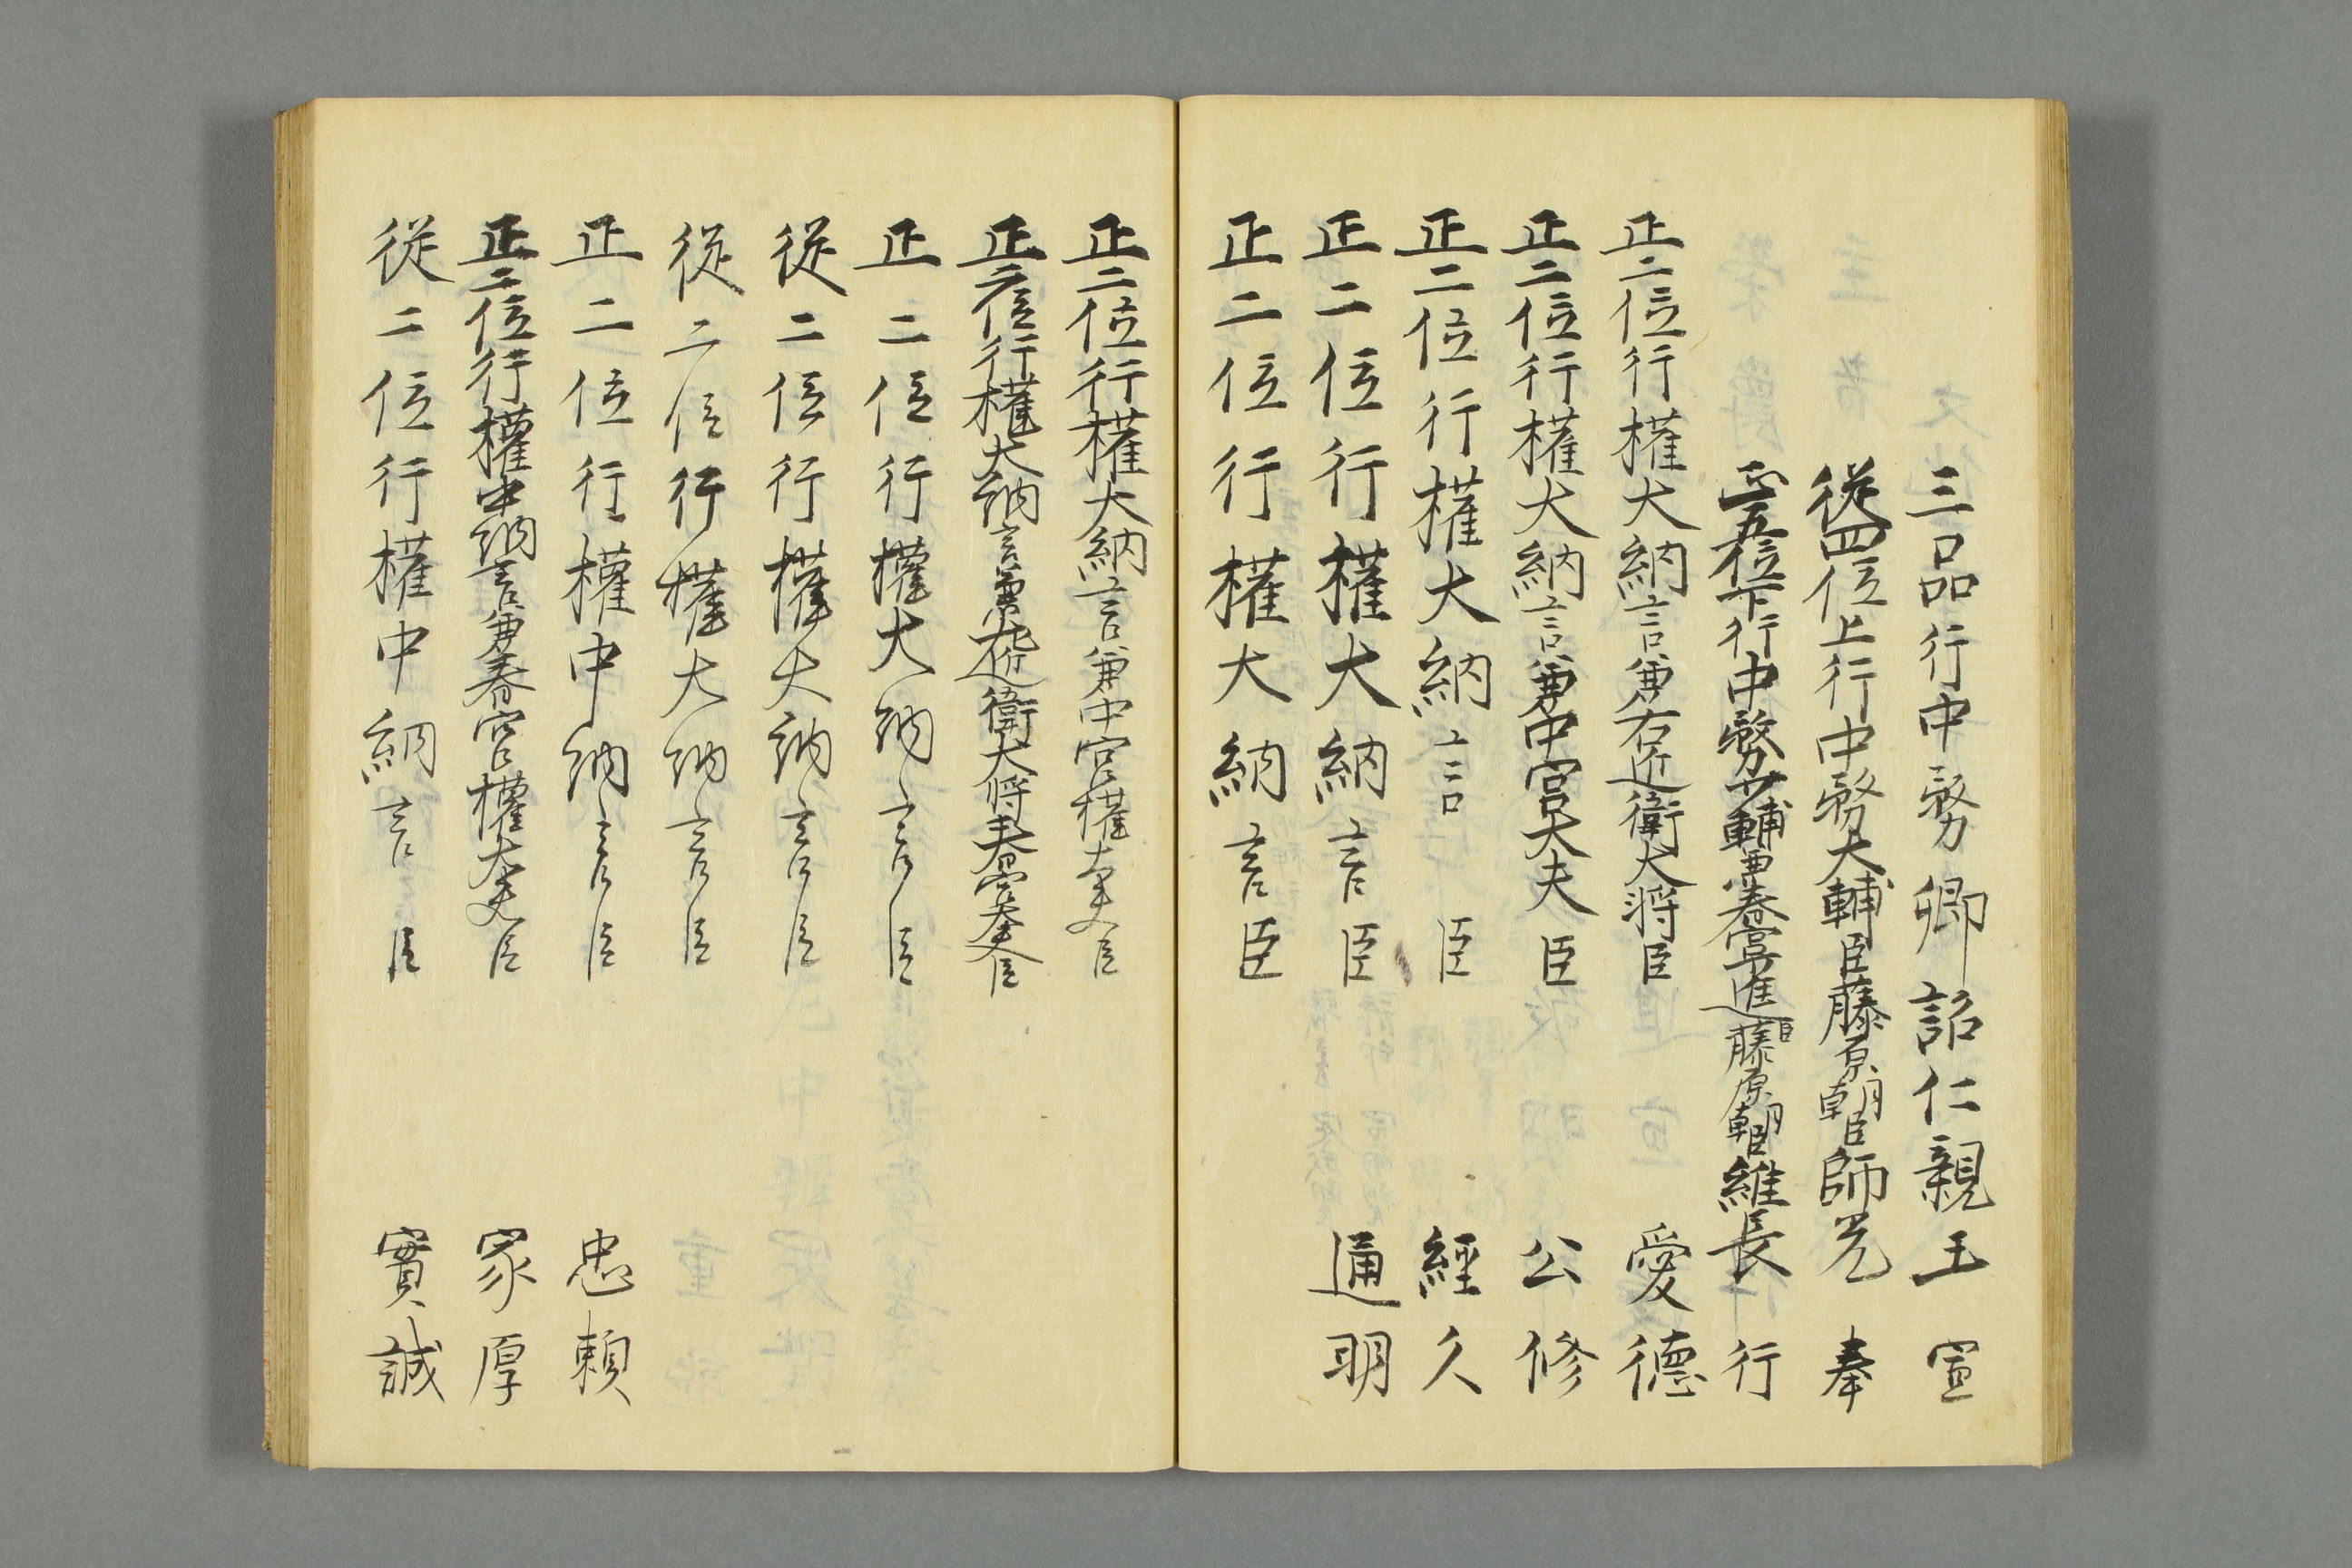 三品行中務卿韶仁親王宣
從四位上行中務大輔臣藤原朝臣師光奉
正五位下行中務少輔兼春宮少進臣藤原朝臣維長行
正二位行權大納言兼右近衛大将臣愛德
正二位行權大納言兼中宮大夫臣公修
正二位行權大納言臣經久
正二位行權大納言臣通明
正二位行權大納言臣
正二位行權大納言兼中宮權大夫臣
正二位行權大納言兼左近衛大将春宮大夫臣
正二位行權大納言臣
從二位行權大納言臣
從二位行權大納言臣
正二位行權中納言臣忠頼
正二位行權中納言兼春宮權大夫臣家厚
從二位行權中納言臣實誠